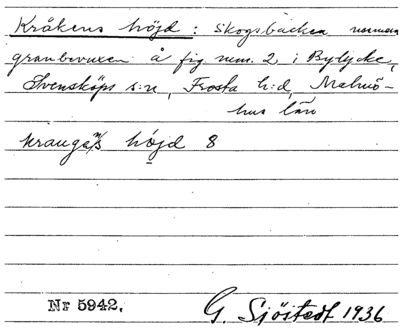 Kråkens höjd: Skogsbacken numera
granbevuxen å fig num. 2 i Bylycke,
Svensköps s:n, Frosta h:d, Malmö-
hus län
höjd 8
Nr 5942. G. Sjöstedt 1936